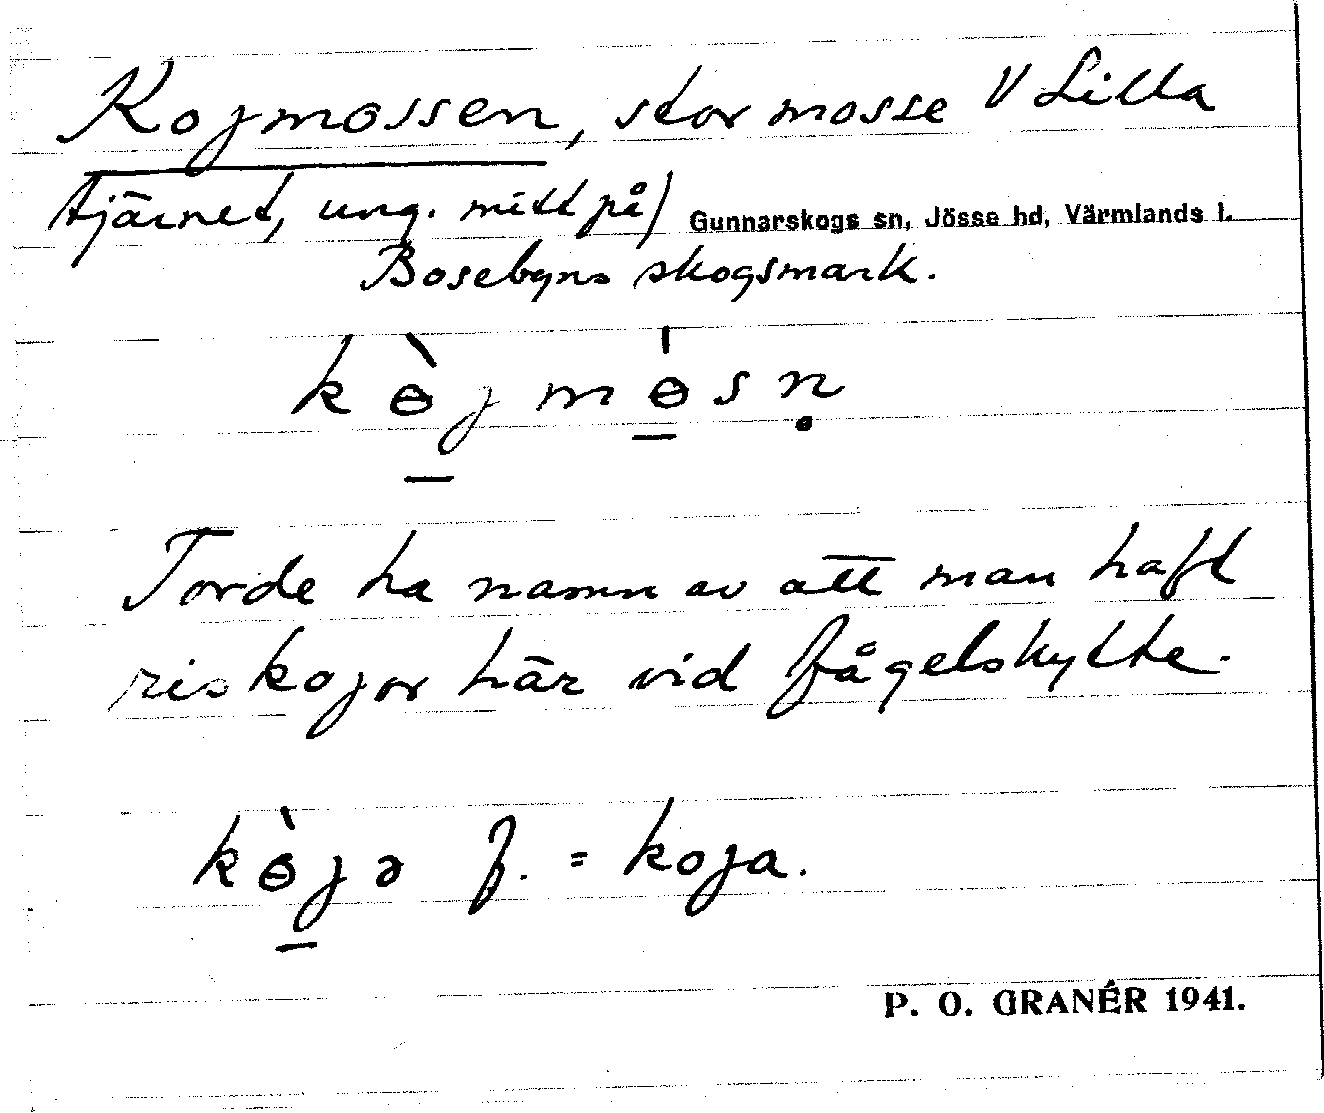 Kojmossen, stor mosse V Lilla
tjärnet, ung. mitt på) Gunnarskogs sn, Jösse hd, Värmlands l.
Bosebyns skogsmark.
kɵ̀jmɵ̍sn̥
Torde ha namn av att man haft
riskojor här vid fågelskytte.
kɵ̀jə f. = koja.
P. O. GRANÉR 1941.